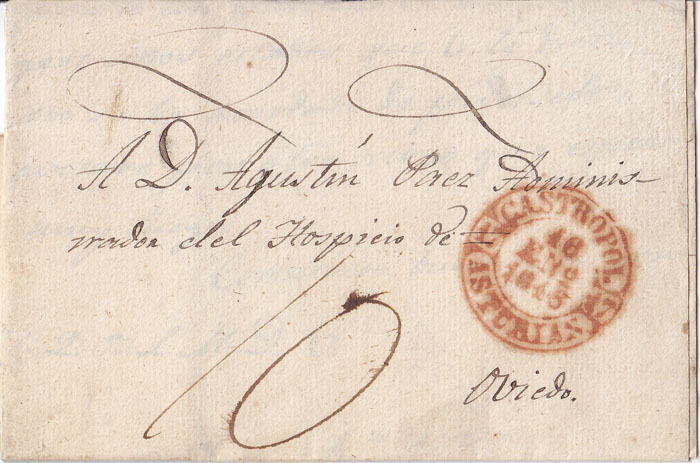 A D. Agustín Paez Adminis-
trador del Hospicio de =
CASTROPOL
16
ENº
1845
ASTURIAS
10
Oviedo.